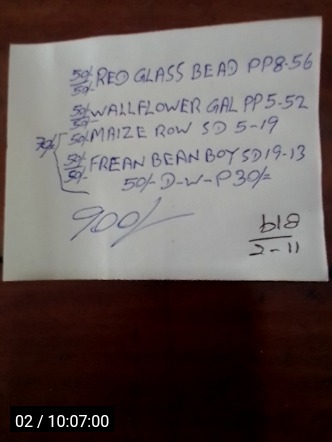 50/- 50/- RED GLASS BEAD PP8-56
50/- 50/- WALLFLOWER GAL PP5-52
70/- 50/- MAIZE ROW SD 5-19
50/- 50/- FREAN BEAN BOY SD19-13
50/- D-W-P 30/=
900/-
b18
2-11
02 / 10:07:00